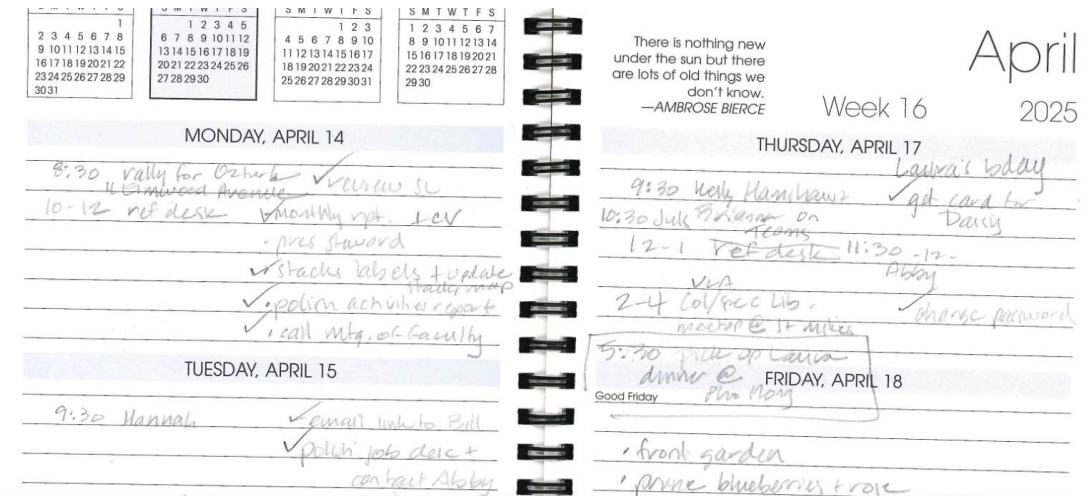 S M T W T F S
1
2 3 4 5 6 7 8
9 10 11 12 13 14 15
16 17 18 19 20 21 22
23 24 25 26 27 28 29
30 31
S M T W T F S
1 2 3 4 5
6 7 8 9 10 11 12
13 14 15 16 17 18 19
20 21 22 23 24 25 26
27 28 29 30
S M T W T F S
1 2 3
4 5 6 7 8 9 10
11 12 13 14 15 16 17
18 19 20 21 22 23 24
25 26 27 28 29 30 31
S M T W T F S
1 2 3 4 5 6 7
8 9 10 11 12 13 14
15 16 17 18 19 20 21
22 23 24 25 26 27 28
29 30
MONDAY, APRIL 14
8:30 rally for Ozturk
Elmwood Avenue
✓ review SL
10-12 ref desk
✓ monthly rpt. + CV
· pres steward
✓ · stacks labels + update
stacks map
✓ · polish activities report
✓ · call mtg. of faculty
TUESDAY, APRIL 15
9:30 Hannah
✓ email link to Bill
✓ polish job desc +
contact Abby
There is nothing new
under the sun but there
are lots of old things we
don't know.
—AMBROSE BIERCE
Week 16
April
2025
THURSDAY, APRIL 17
Laura's bday
9:30 Kelly
✓ get card for
Darcy
10:30 Brianna on
Teams
12-1 ref desk 11:30-12-
Abby
2-4 Col/Spec Lib.
meetup @ St Mikes
✓ change password
5:30 pick up Laura
dinner @
Pho Hong
FRIDAY, APRIL 18
Good Friday
· front garden
· prune blueberries + rose